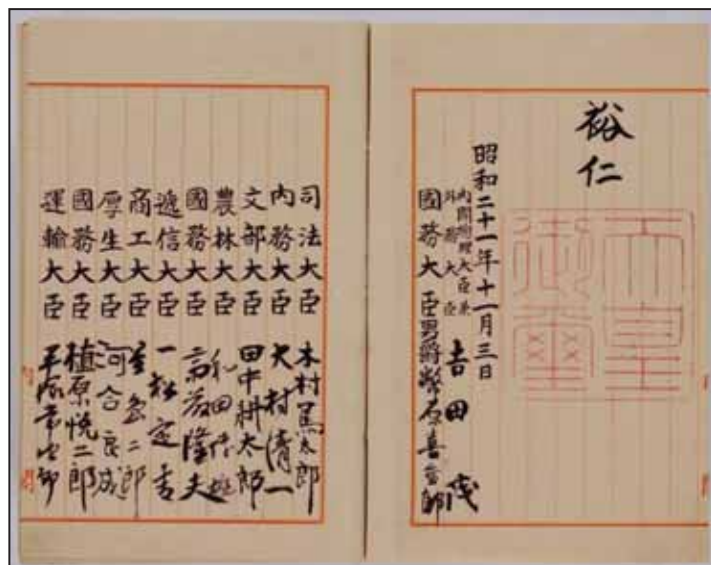 裕仁
天皇御璽
昭和二十一年十一月三日
内閣総理大臣兼
外務大臣 吉田茂
國務大臣 男爵 幣原喜重郎
司法大臣 木村篤太郎
内務大臣 大村清一
文部大臣 田中耕太郎
農林大臣 和田博雄
國務大臣 斎藤隆夫
遞信大臣 一松定吉
商工大臣 星島二郎
厚生大臣 河合良成
國務大臣 植原悦二郎
運輸大臣 平塚常次郎